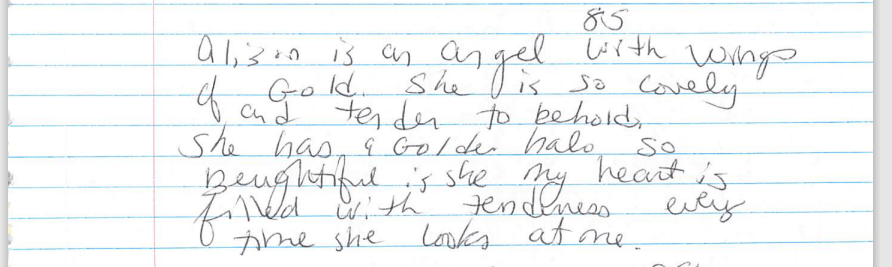 85
alison is an angel with wings
of Gold. She is so lovely
and tender to behold,
She has a Golden halo so
Beughtiful is she my heart is
filled with tendeness every
time she looks at me.